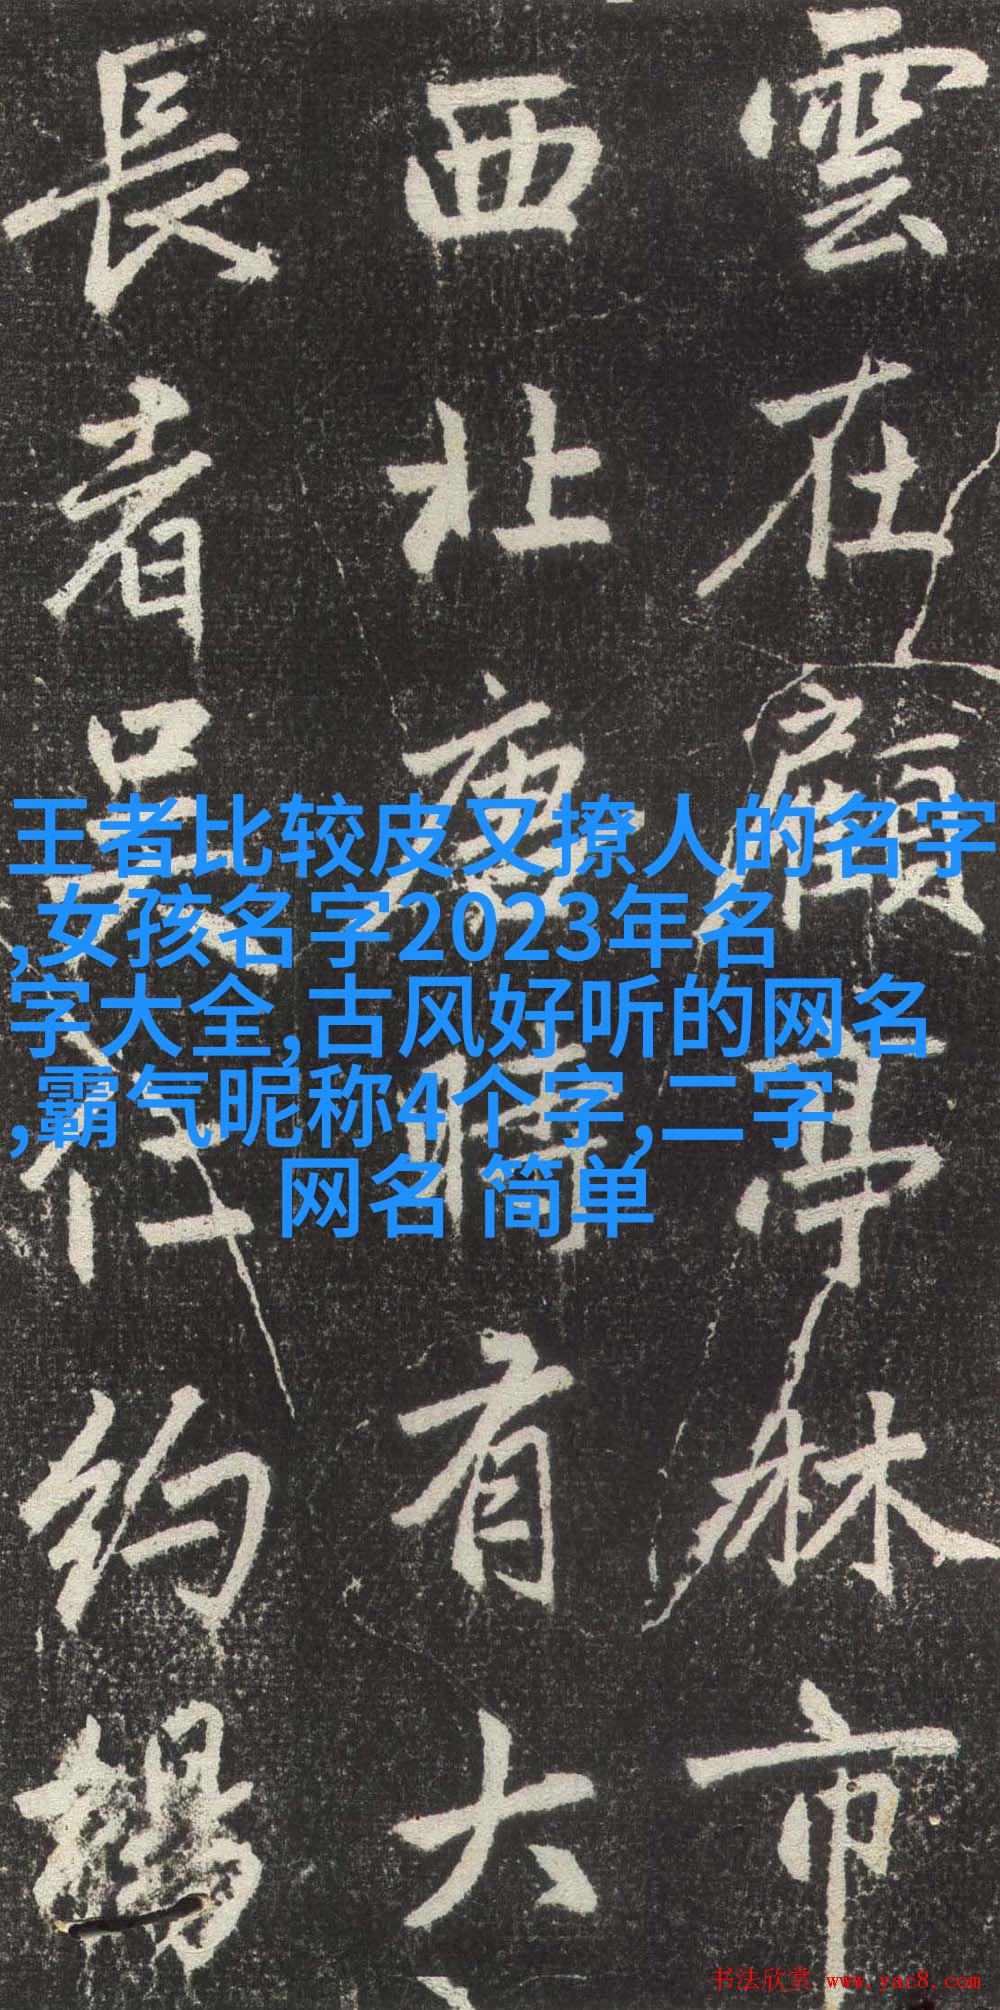 雲在顧亭林市
西北唐時有大
長者吳約
王者比较皮又撩人的名字
,女孩名字2023年名
字大全,古风好听的网名
,霸气昵称4个字,二字
网名 简单
书法欣赏 www.yac8.com